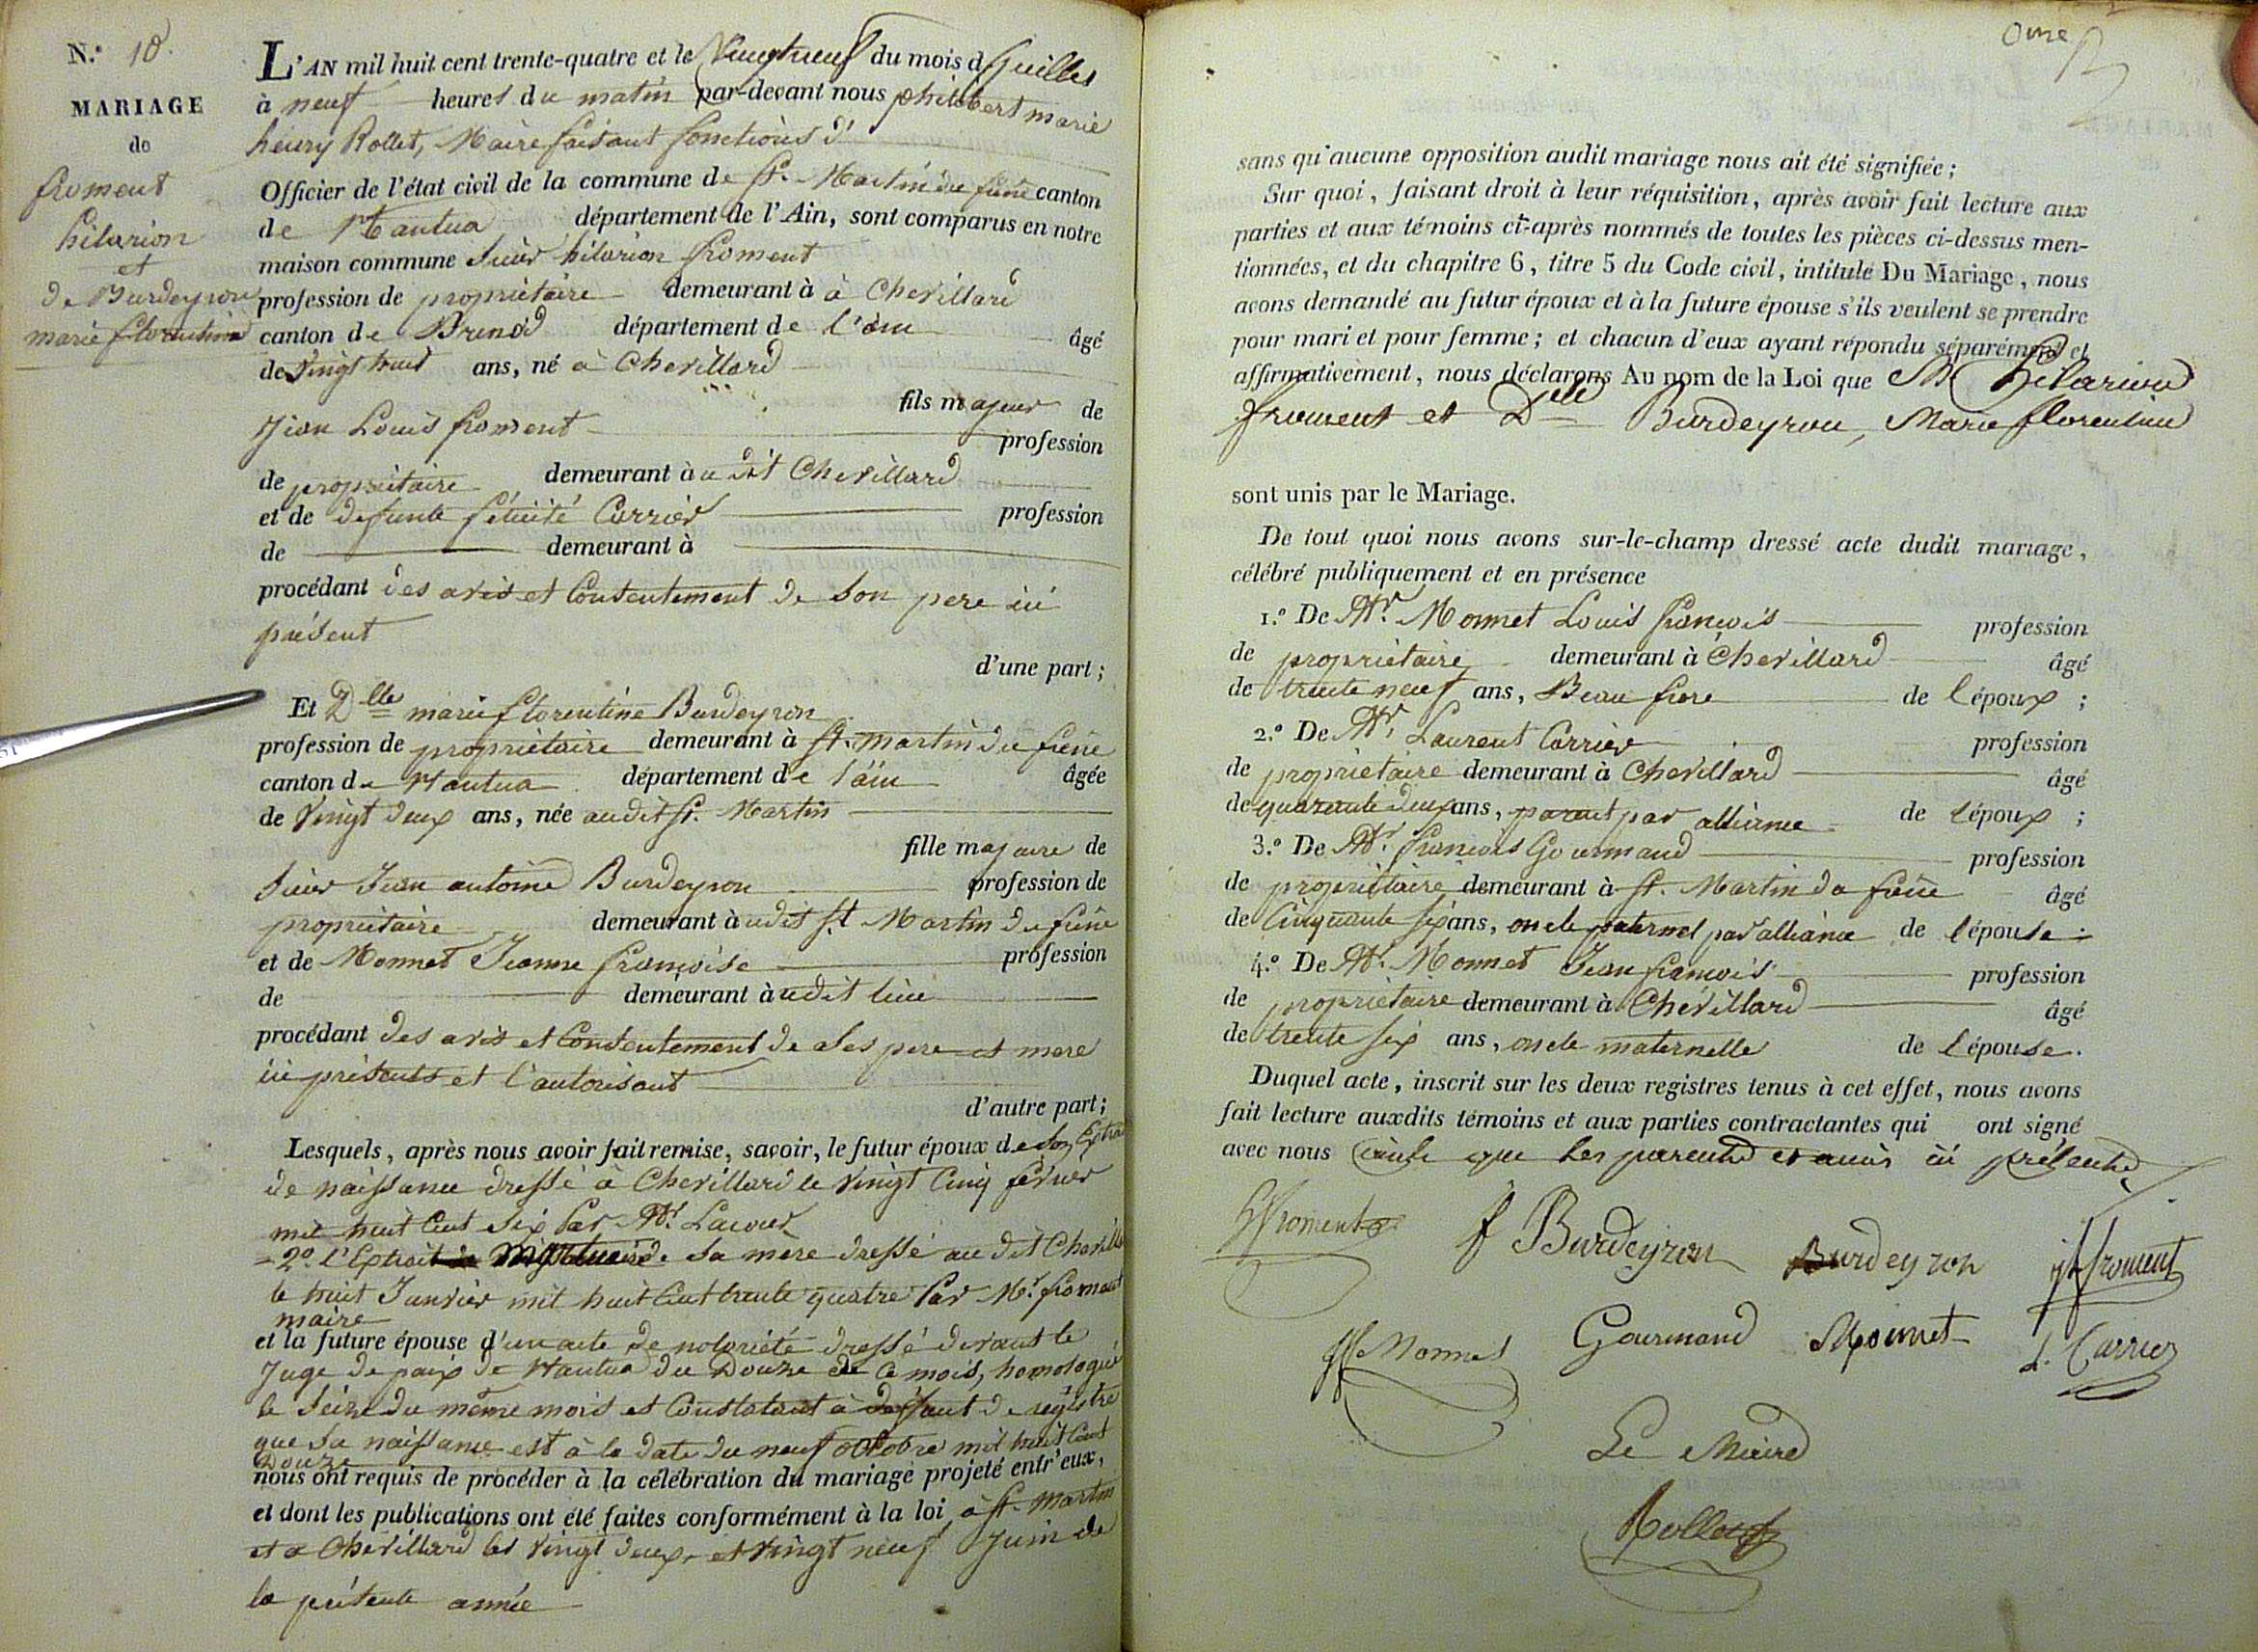 N.° 10.
MARIAGE
de
froment
hilarion
et
De Burdeyron
marie florentine
L'AN mil huit cent trente-quatre et le Vingt neuf du mois de Juillet
à neuf heures du matin par-devant nous philibert marie
henry Rollet, Maire faisant fonctions d'
Officier de l'état civil de la commune de St. Martin du frene canton
de Nantua département de l'Ain, sont comparus en notre
maison commune sieur hilarion froment
profession de propriétaire demeurant à à Chevillard
canton de Brenod département de l'ain âgé
de Vingt huit ans, né à Chevillard
fils majeur de
Jean Louis froment profession
de propriétaire demeurant à u dit Chevillard
et de defunte félicité Carrier profession
de demeurant à
procédant des avis et Consentement de son pere ici
présent
d'une part;
Et Dlle marie florentine Burdeyron
profession de propriétaire demeurant à St. martin du frene
canton de Nantua département de l'ain âgée
de Vingt deux ans, née au dit St. Martin
fille majeure de
sieur Jean antoine Burdeyron profession de
propriétaire demeurant à udit St Martin du frene
et de Monnet Jeanne françoise profession
de demeurant à udit lieu
procédant des avis et Consentement de ses pere et mere
ici présents et l'autorisant
d'autre part;
Lesquels, après nous avoir fait remise, savoir, le futur époux de son Extrait
de naissance dressé à Chevillard le Vingt Cinq février
mil huit Cent six par Mr. Lacour
= 2.° l'Extrait mortuaire de sa mere dressé au dit Chevillard
le huit Janvier mil huit Cent trente quatre par Mr. froment
maire
et la future épouse d'un acte de notoriété dressé devant le
Juge de paix de Nantua du Douze de Ce mois, homologué
le seize du même mois et Constatant à defaut de registre
que sa naissance est à la date du neuf octobre mil huit Cent
Douze
nous ont requis de procéder à la célébration du mariage projeté entr'eux,
et dont les publications ont été faites conformément à la loi à St. Martin
et a Chevillard les Vingt deux et Vingt neuf Juin de
la présente année
onze
sans qu'aucune opposition audit mariage nous ait été signifiée;
Sur quoi, faisant droit à leur réquisition, après avoir fait lecture aux
parties et aux témoins ci-après nommés de toutes les pièces ci-dessus men-
tionnées, et du chapitre 6, titre 5 du Code civil, intitulé Du Mariage, nous
avons demandé au futur époux et à la future épouse s'ils veulent se prendre
pour mari et pour femme; et chacun d'eux ayant répondu séparément et
affirmativement, nous déclarons Au nom de la Loi que Mr hilarion
froment et Dlle Burdeyron, Marie florentine
sont unis par le Mariage.
De tout quoi nous avons sur-le-champ dressé acte dudit mariage,
célébré publiquement et en présence
1.° De Mr. Monnet Louis françois profession
de propriétaire demeurant à Chevillard âgé
de trente neuf ans, Beau frere de l'époux;
2.° De Mr. Laurent Carrier profession
de propriétaire demeurant à Chevillard âgé
de quarante deux ans, parent par alliance de l'époux;
3.° De Mr. françois Gourmand profession
de propriétaire demeurant à St. Martin du frene âgé
de Cinquante six ans, oncle paternel par alliance de l'épouse;
4.° De Mr. Monnet Jean françois profession
de propriétaire demeurant à Chevillard âgé
de trente six ans, oncle maternelle de l'épouse.
Duquel acte, inscrit sur les deux registres tenus à cet effet, nous avons
fait lecture auxdits témoins et aux parties contractantes qui ont signé
avec nous ainsi que les parents et amis ici présents
hfroment f Burdeyron Burdeyron jl froment
Monnet Gourmand Monnet L. Carrier
Le Maire
Rollet